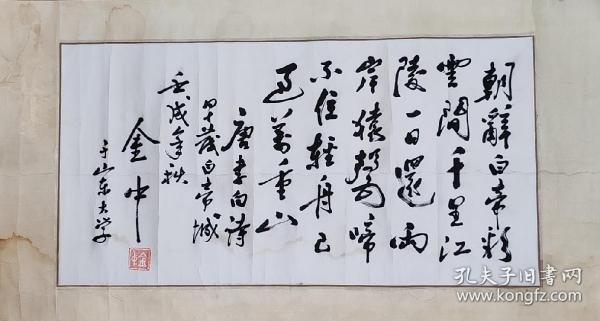 朝辭白帝彩
雲間千里江
陵一日還兩
岸猿聲啼
不住輕舟已
過萬重山
唐李白詩
早發白帝城
壬戌年秋
金中
于山东大学
孔夫子旧书网
www.kongfz.com